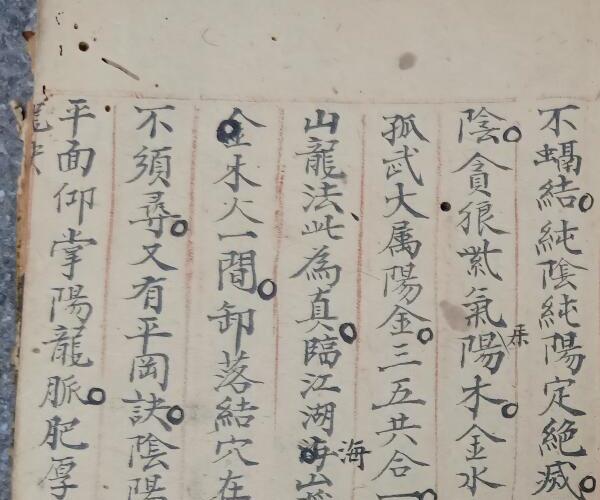 不結。純陰純陽定絕滅。
陰。貪狼紫氣陽木。金水
孤武大属陽金。三五共合
山龍法、此為真。臨江湖海山
海
金木火一間。卸落結穴在
不須尋。又有平岡訣。陰陽
平面仰掌陽龍脈。肥厚